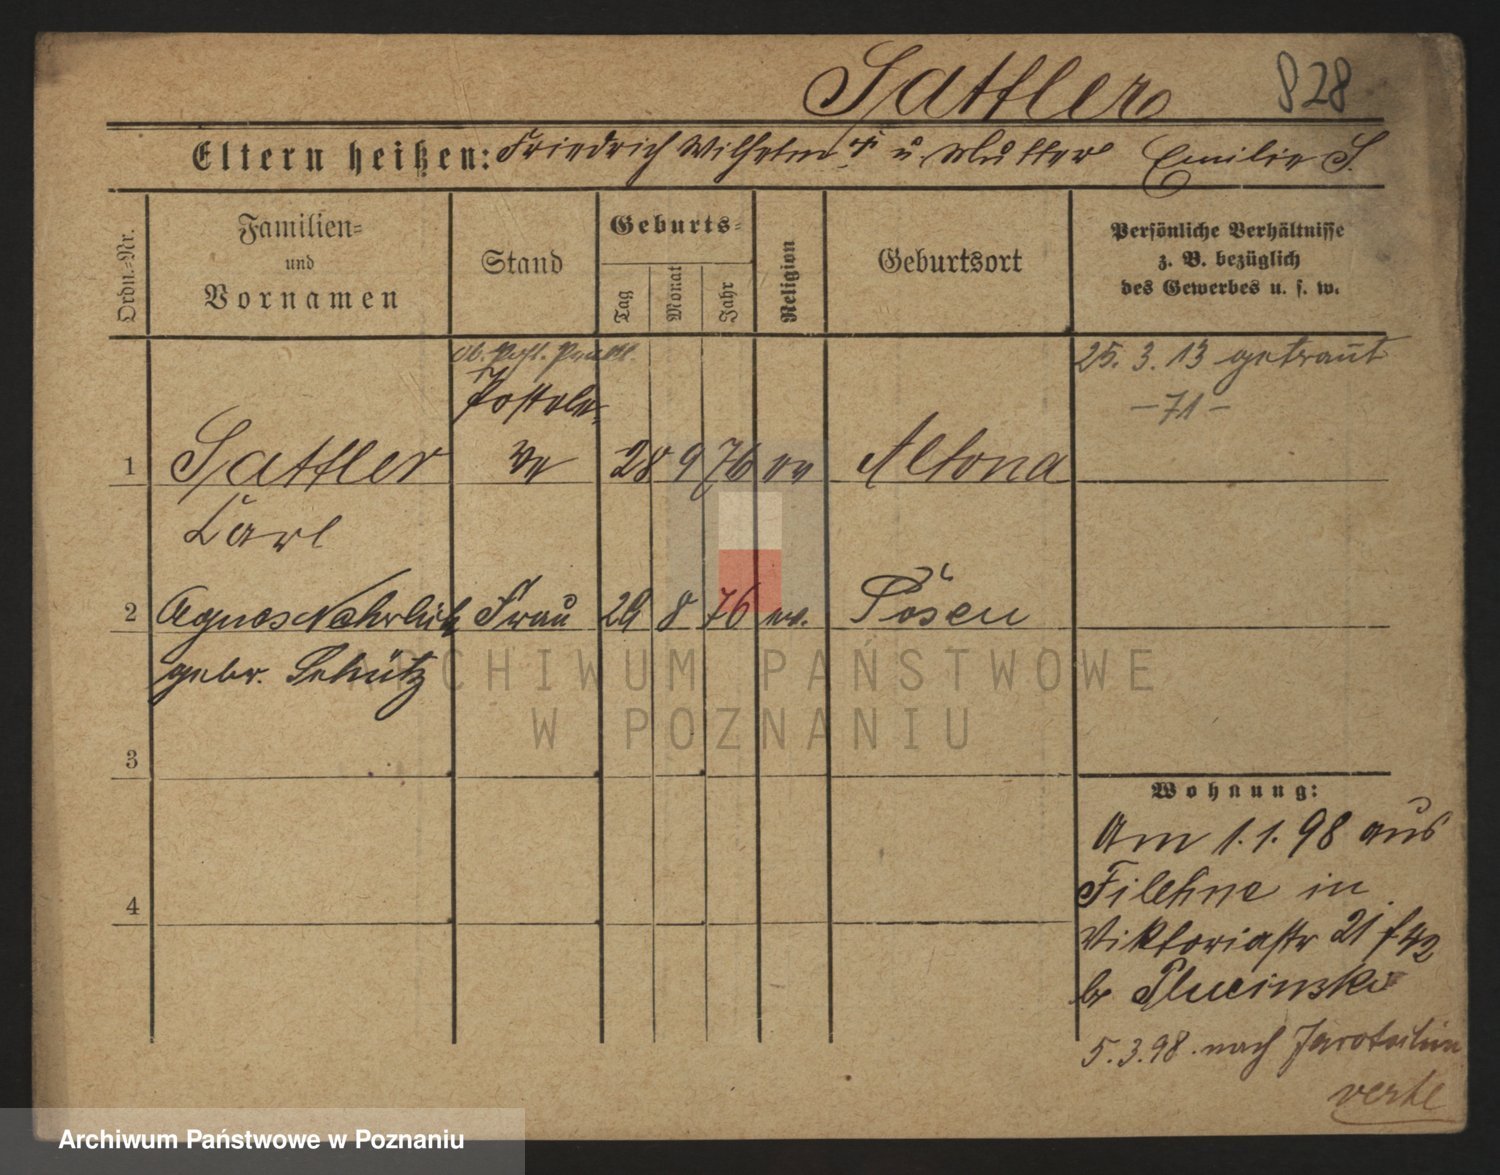 Sattler 828
Eltern heißen: Friedrich Wilhelm † u. Mutter Emilie S.
Ordn.-Nr. Familien- und Vornamen Stand Geburts- Tag Monat Jahr Religion Geburtsort Persönliche Verhältnisse z. B. bezüglich des Gewerbes u. s. w.
25. 3. 13 getraut
Postele-
-71-
1 Sattler ve 28 9 76 ev Altona
Carl
2 Agnes Frau 29 8 76 ev. Posen
gebr. Schütz
3
Wohnung:
Am 1.1.98 aus
4 Filehne in
Viktoriastr 21
b Plucinski
5.3.98. nach Jarotschin
verte
ARCHIWUM PAŃSTWOWE
W POZNANIU
Archiwum Państwowe w Poznaniu